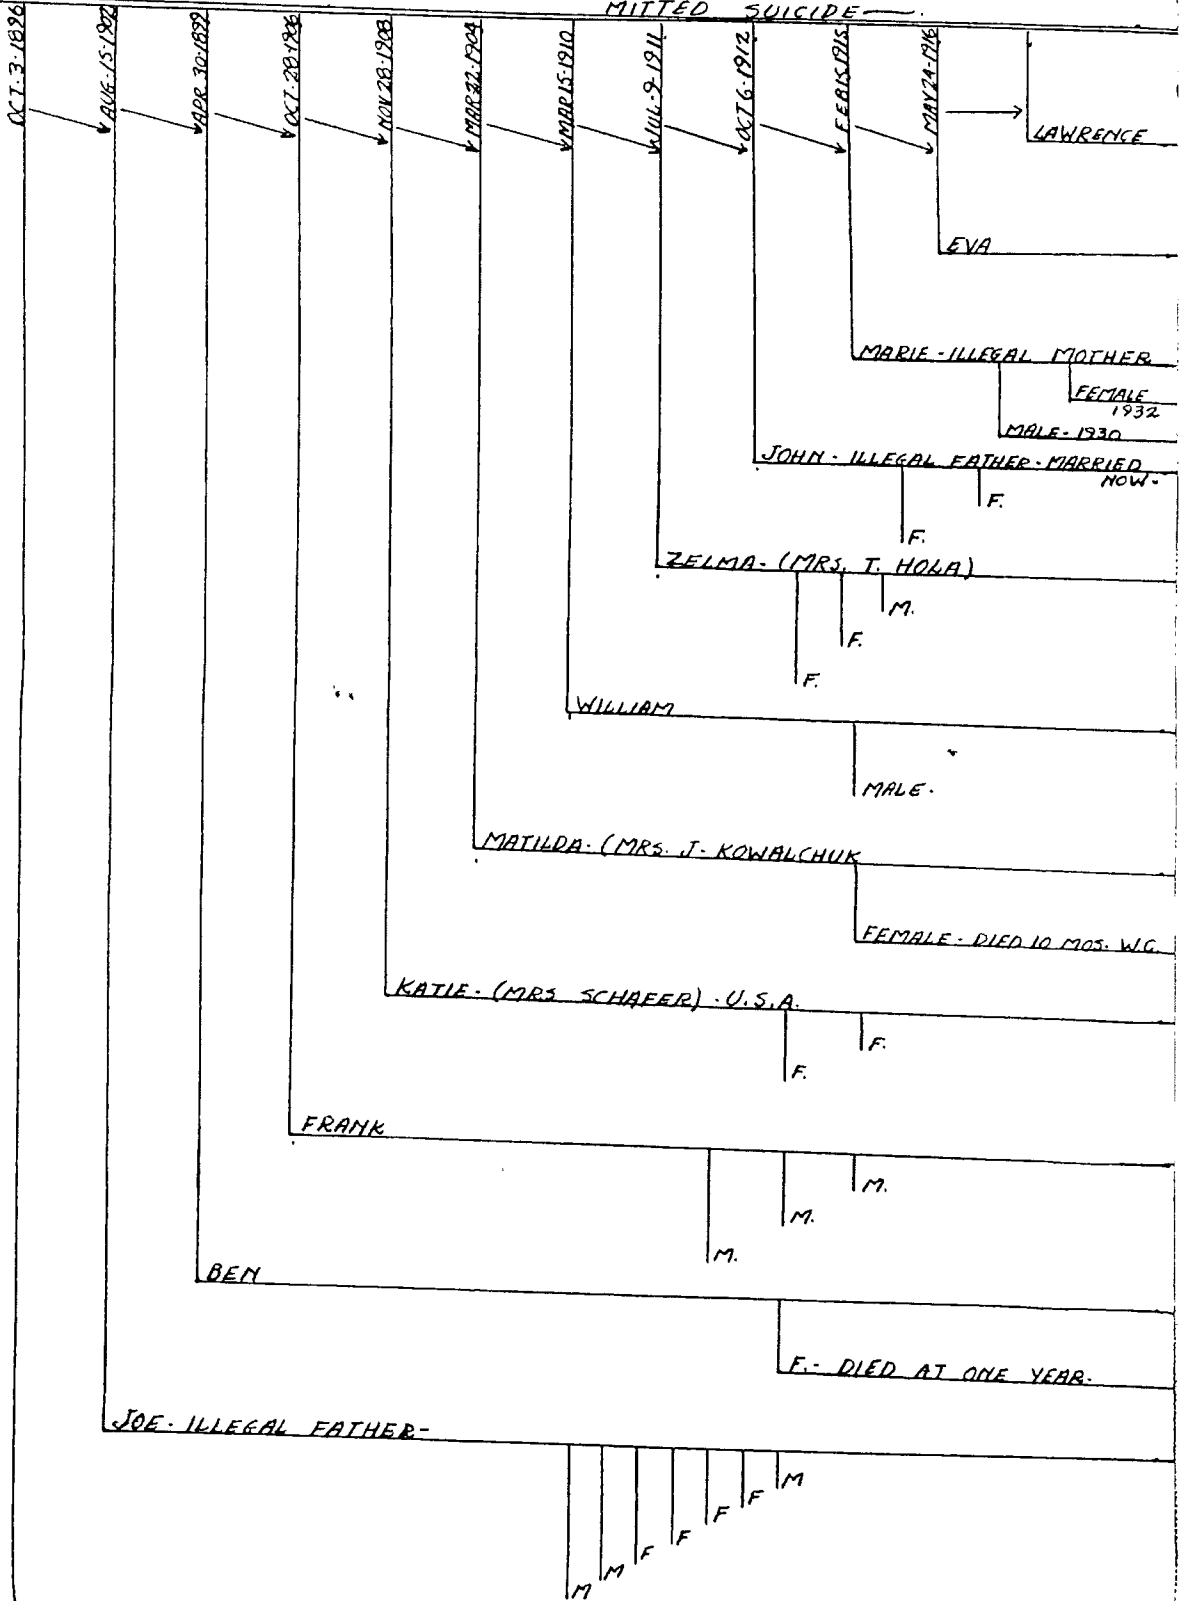 MITTED SUICIDE—.
OCT. 3. 1896
AUG. 15. 1902
APR. 30. 1899
OCT. 28. 1906
NOV 28. 1908
MAR 22. 1904
MAR 15. 1910
9. 1911
OCT 6. 1912
FEB 15 1915
MAY 24. 1916
LAWRENCE
EVA
MARIE - ILLEGAL MOTHER
FEMALE
1932
MALE - 1930
JOHN - ILLEGAL FATHER - MARRIED
NOW -
F.
F.
ZELMA - (MRS. T. HOLA)
M.
F.
F.
WILLIAM
MALE.
MATILDA - (MRS. J - KOWALCHUK
FEMALE - DIED 10 MOS. W.G.
KATIE - (MRS SCHAFER) - U.S.A.
F.
F.
FRANK
M.
M.
M.
BEN
F. - DIED AT ONE YEAR.
JOE - ILLEGAL FATHER -
M
F
F
F
F
M
M